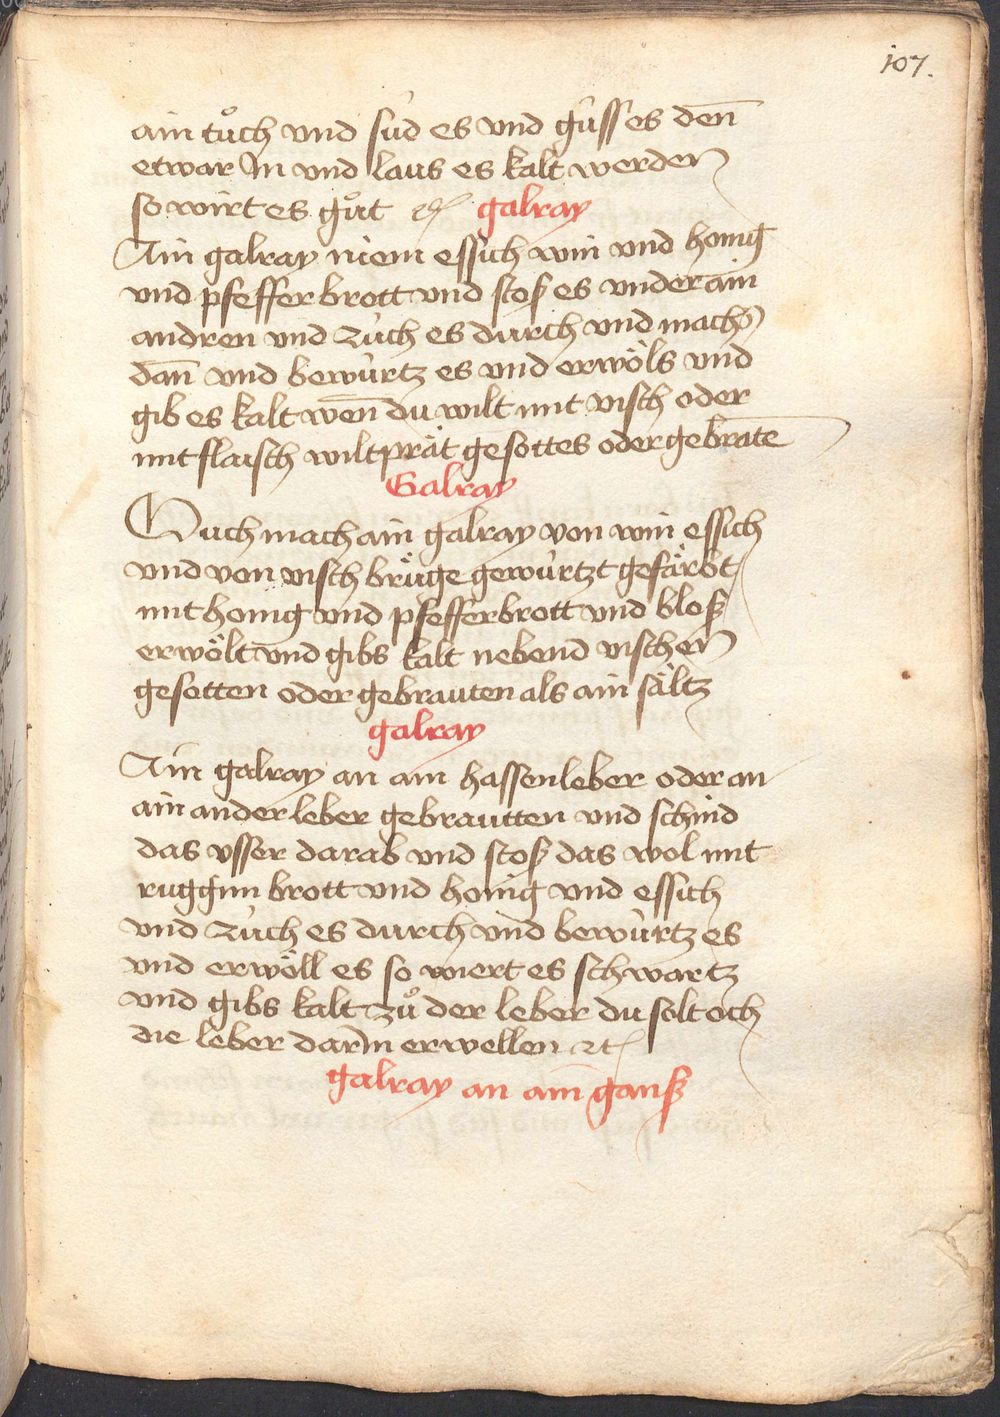 107.
ain tuͦch vnd süd es vnd güss es den̄
etwar In vnd laus es kalt werden
so wirt es guͦt ꝛc galray
Ain galray niem essich win vnd honig
vnd pfeffer brott vnd stoß es vnder ain
andren vnd züch es durch vnd mach
dan̄ vnd bewürtz es vnd erwöls vnd
gib es kalt wen̄ du wilt mit visch oder
mit flaisch wiltprät gesottes oder gebrate
Galray
Ouch mach ain galray von win essich
vnd von visch brüge gewürtzt gefärbt
mit honig vnd pfefferbrott vnd blos
erwölt vnd gibs kalt nebend vischen
gesotten oder gebrauten als ain sältz
galray
Ain galray an ain hassenleber oder an
ain ander leber gebrautten vnd schind
das vsser darab vnd stoß das wol mit
ruggim brott vnd honig vnd essich
vnd züch es durch vnd bewürtz es
vnd erwöll es so wiert es schwartz
vnd gibs kalt zuͦ der leber du solt och
die leber darIn erwellen ꝛc
galray an ain ganß